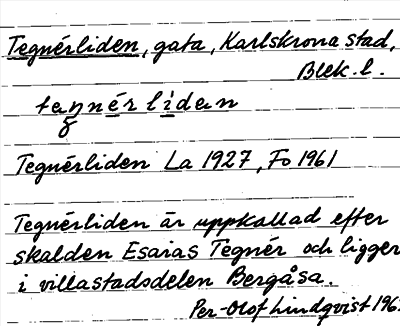 Tegnérliden, gata, Karlskrona stad,
Blek. l.
taŋnérlidan
Tegnérliden La 1927, Fo 1961
Tegnérliden är uppkallad efter
skalden Esaias Tegnér och ligger
i villastadsdelen Bergåsa.
Per-Olof Lindqvist